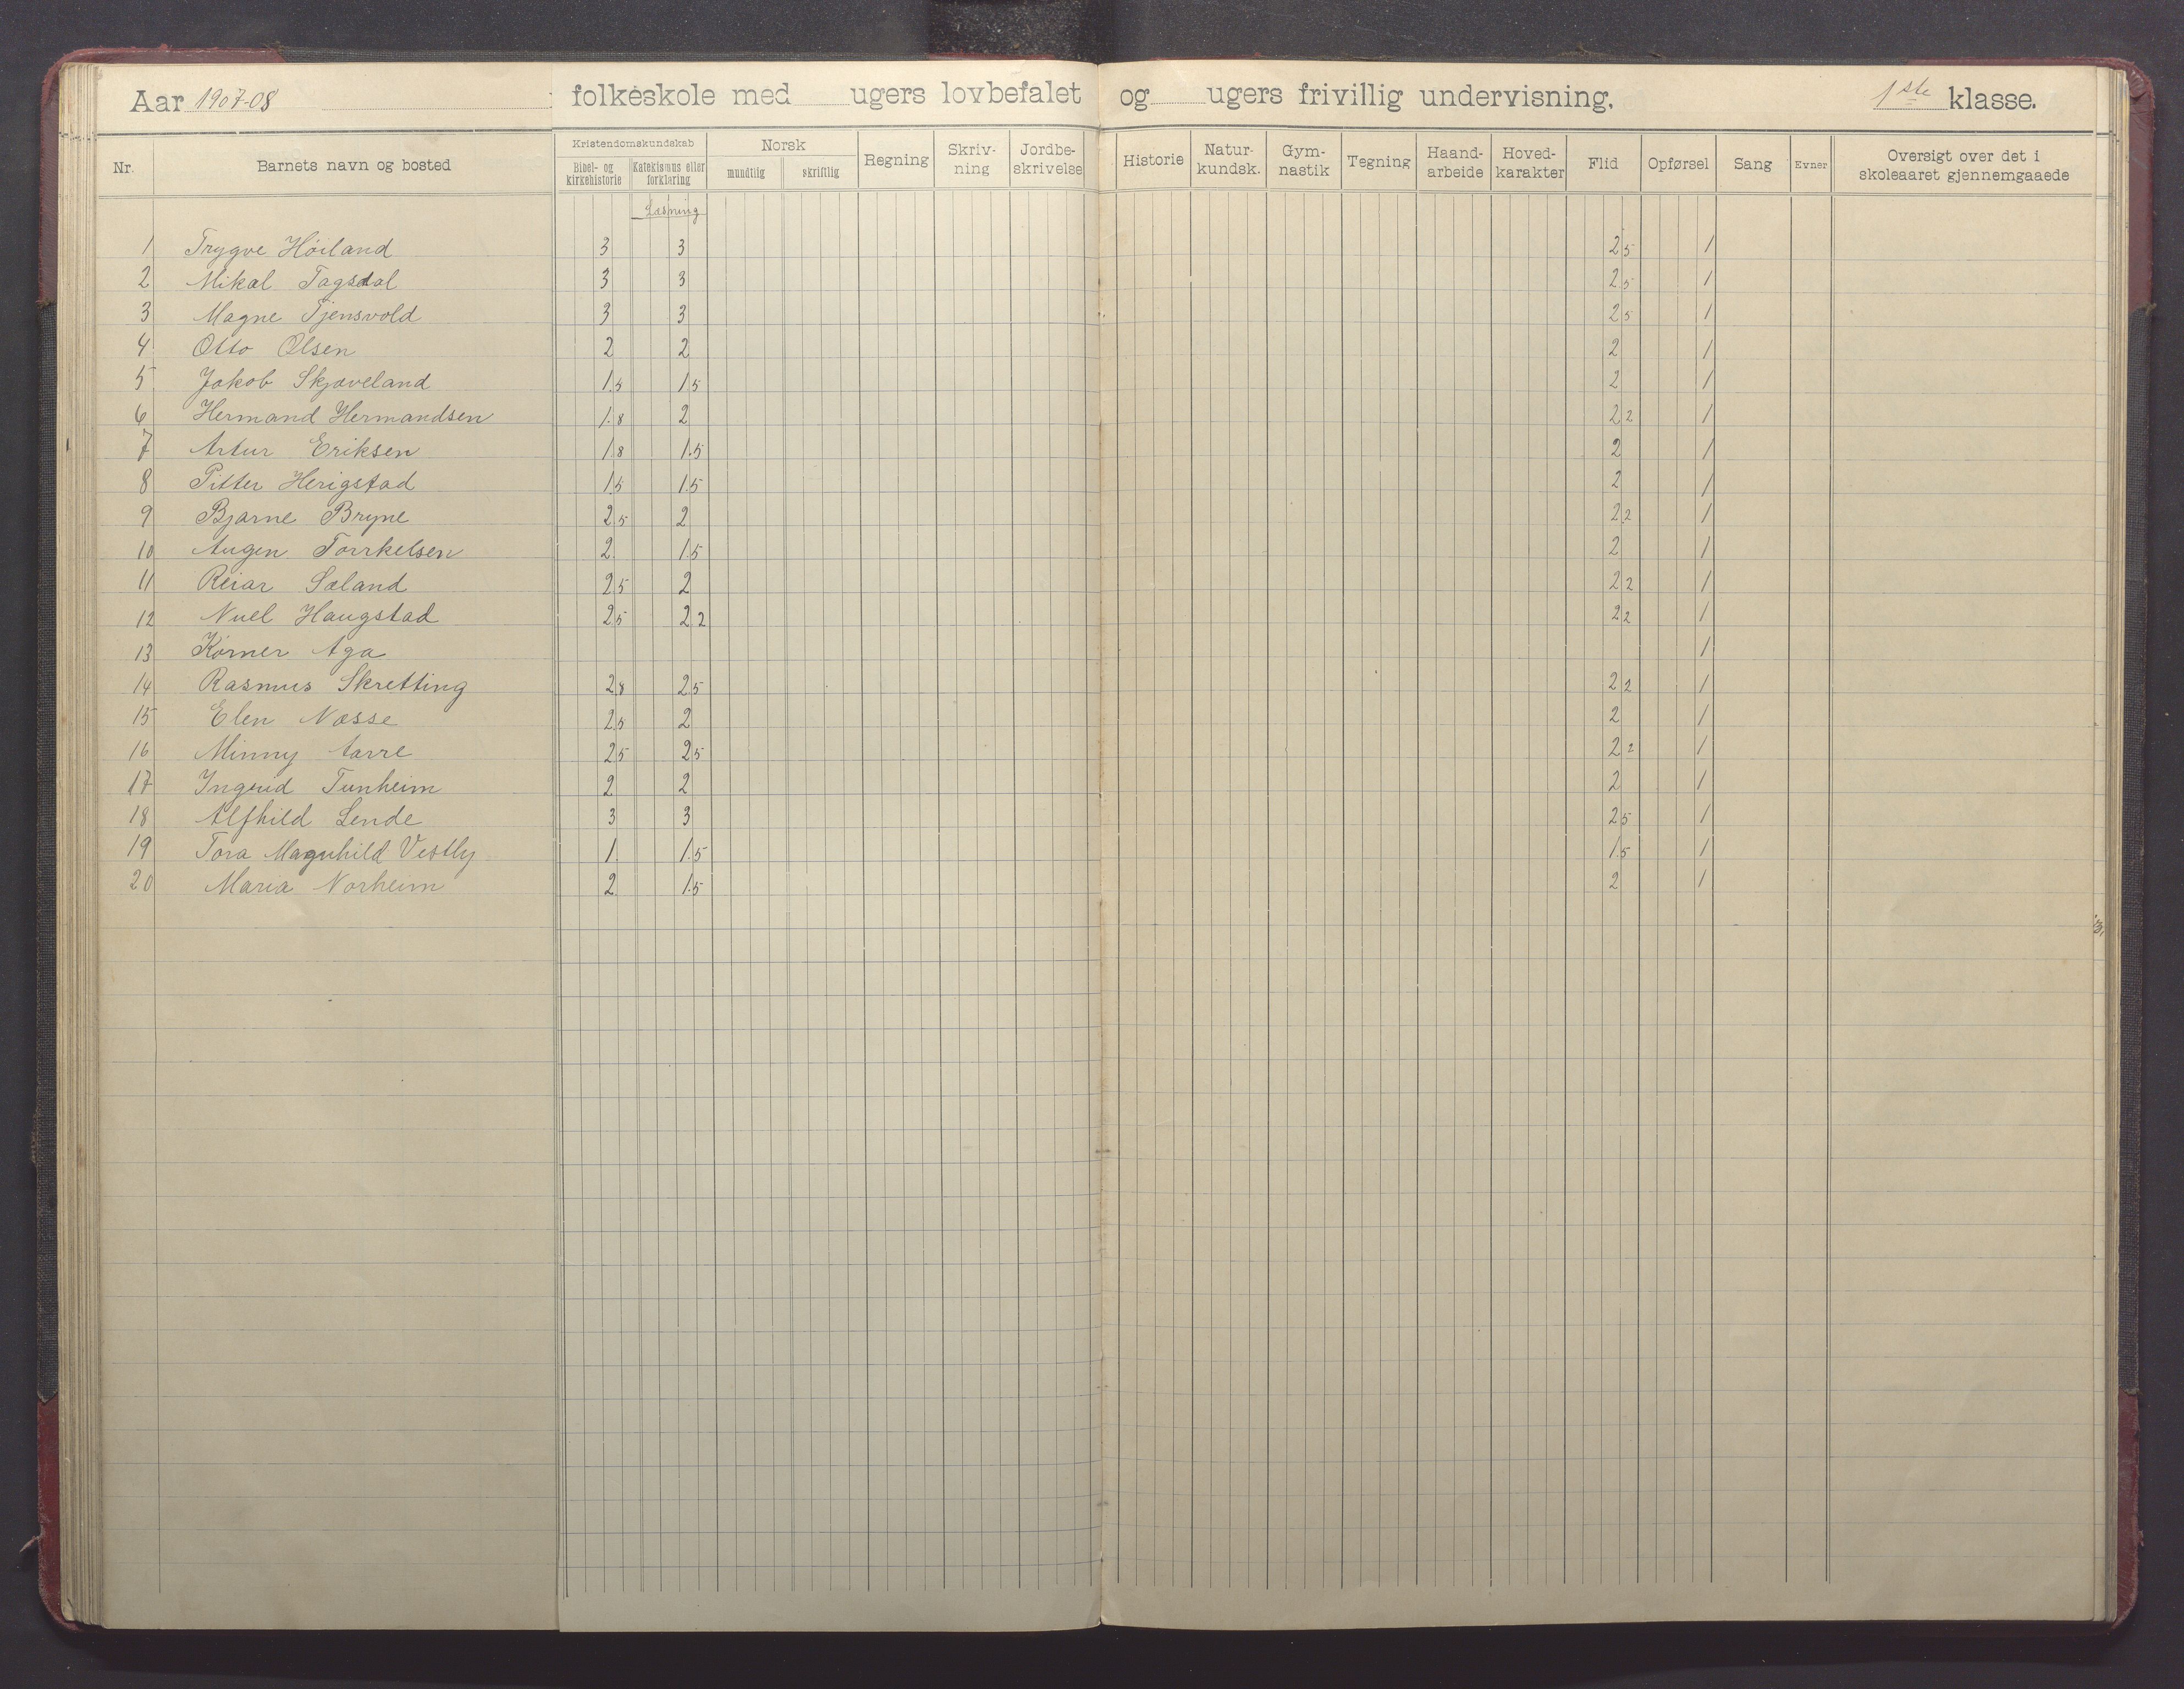 Aar 1907-08 folkeskole med ugers lovbefalet og ugers frivillig undervisning. 1ste klasse.
Nr. Barnets navn og bosted Kristendomskundskab Bibel- og kirkehistorie Katekismus eller forklaring Norsk mundtlig skriftlig Regning Skriv-ning Jordbe-skrivelse Historie Natur-kundsk. Gym-nastik Tegning Haand-arbeide Hoved-karakter Flid Opførsel Sang Evner Oversigt over det i skoleaaret gjennemgaaede
Læsning
1 Trygve Höiland 3 3 2.5 1
2 Mikal Tagsdal 3 3 2.5 1
3 Magne Tjensvold 3 3 2.5 1
4 Otto Olsen 2 2 2 1
5 Jakob Skjæveland 1.5 1.5 2 1
6 Hermand Hermandsen 1.8 2 2.2 1
7 Artur Eriksen 1.8 1.5 2 1
8 Pitter Herigstad 1.5 1.5 2 1
9 Bjarne Bryne 2.5 2 2.2 1
10 Augen Torrkelsen 2 1.5 2 1
11 Reiar Sæland 2.5 2 2.2 1
12 Nuel Haugstad 2.5 2.2 2.2 1
13 Körner Aga 1
14 Rasmus Skretting 2.8 2.5 2.2 1
15 Elen Næsse 2.5 2 2 1
16 Minny Aarre 2.5 2.5 2.2 1
17 Ingrid Tunheim 2 2 2 1
18 Alfhild Lende 3 3 2.5 1
19 Tora Magnhild Vestly 1 1.5 1.5 1
20 Maria Norheim 2 1.5 2 1